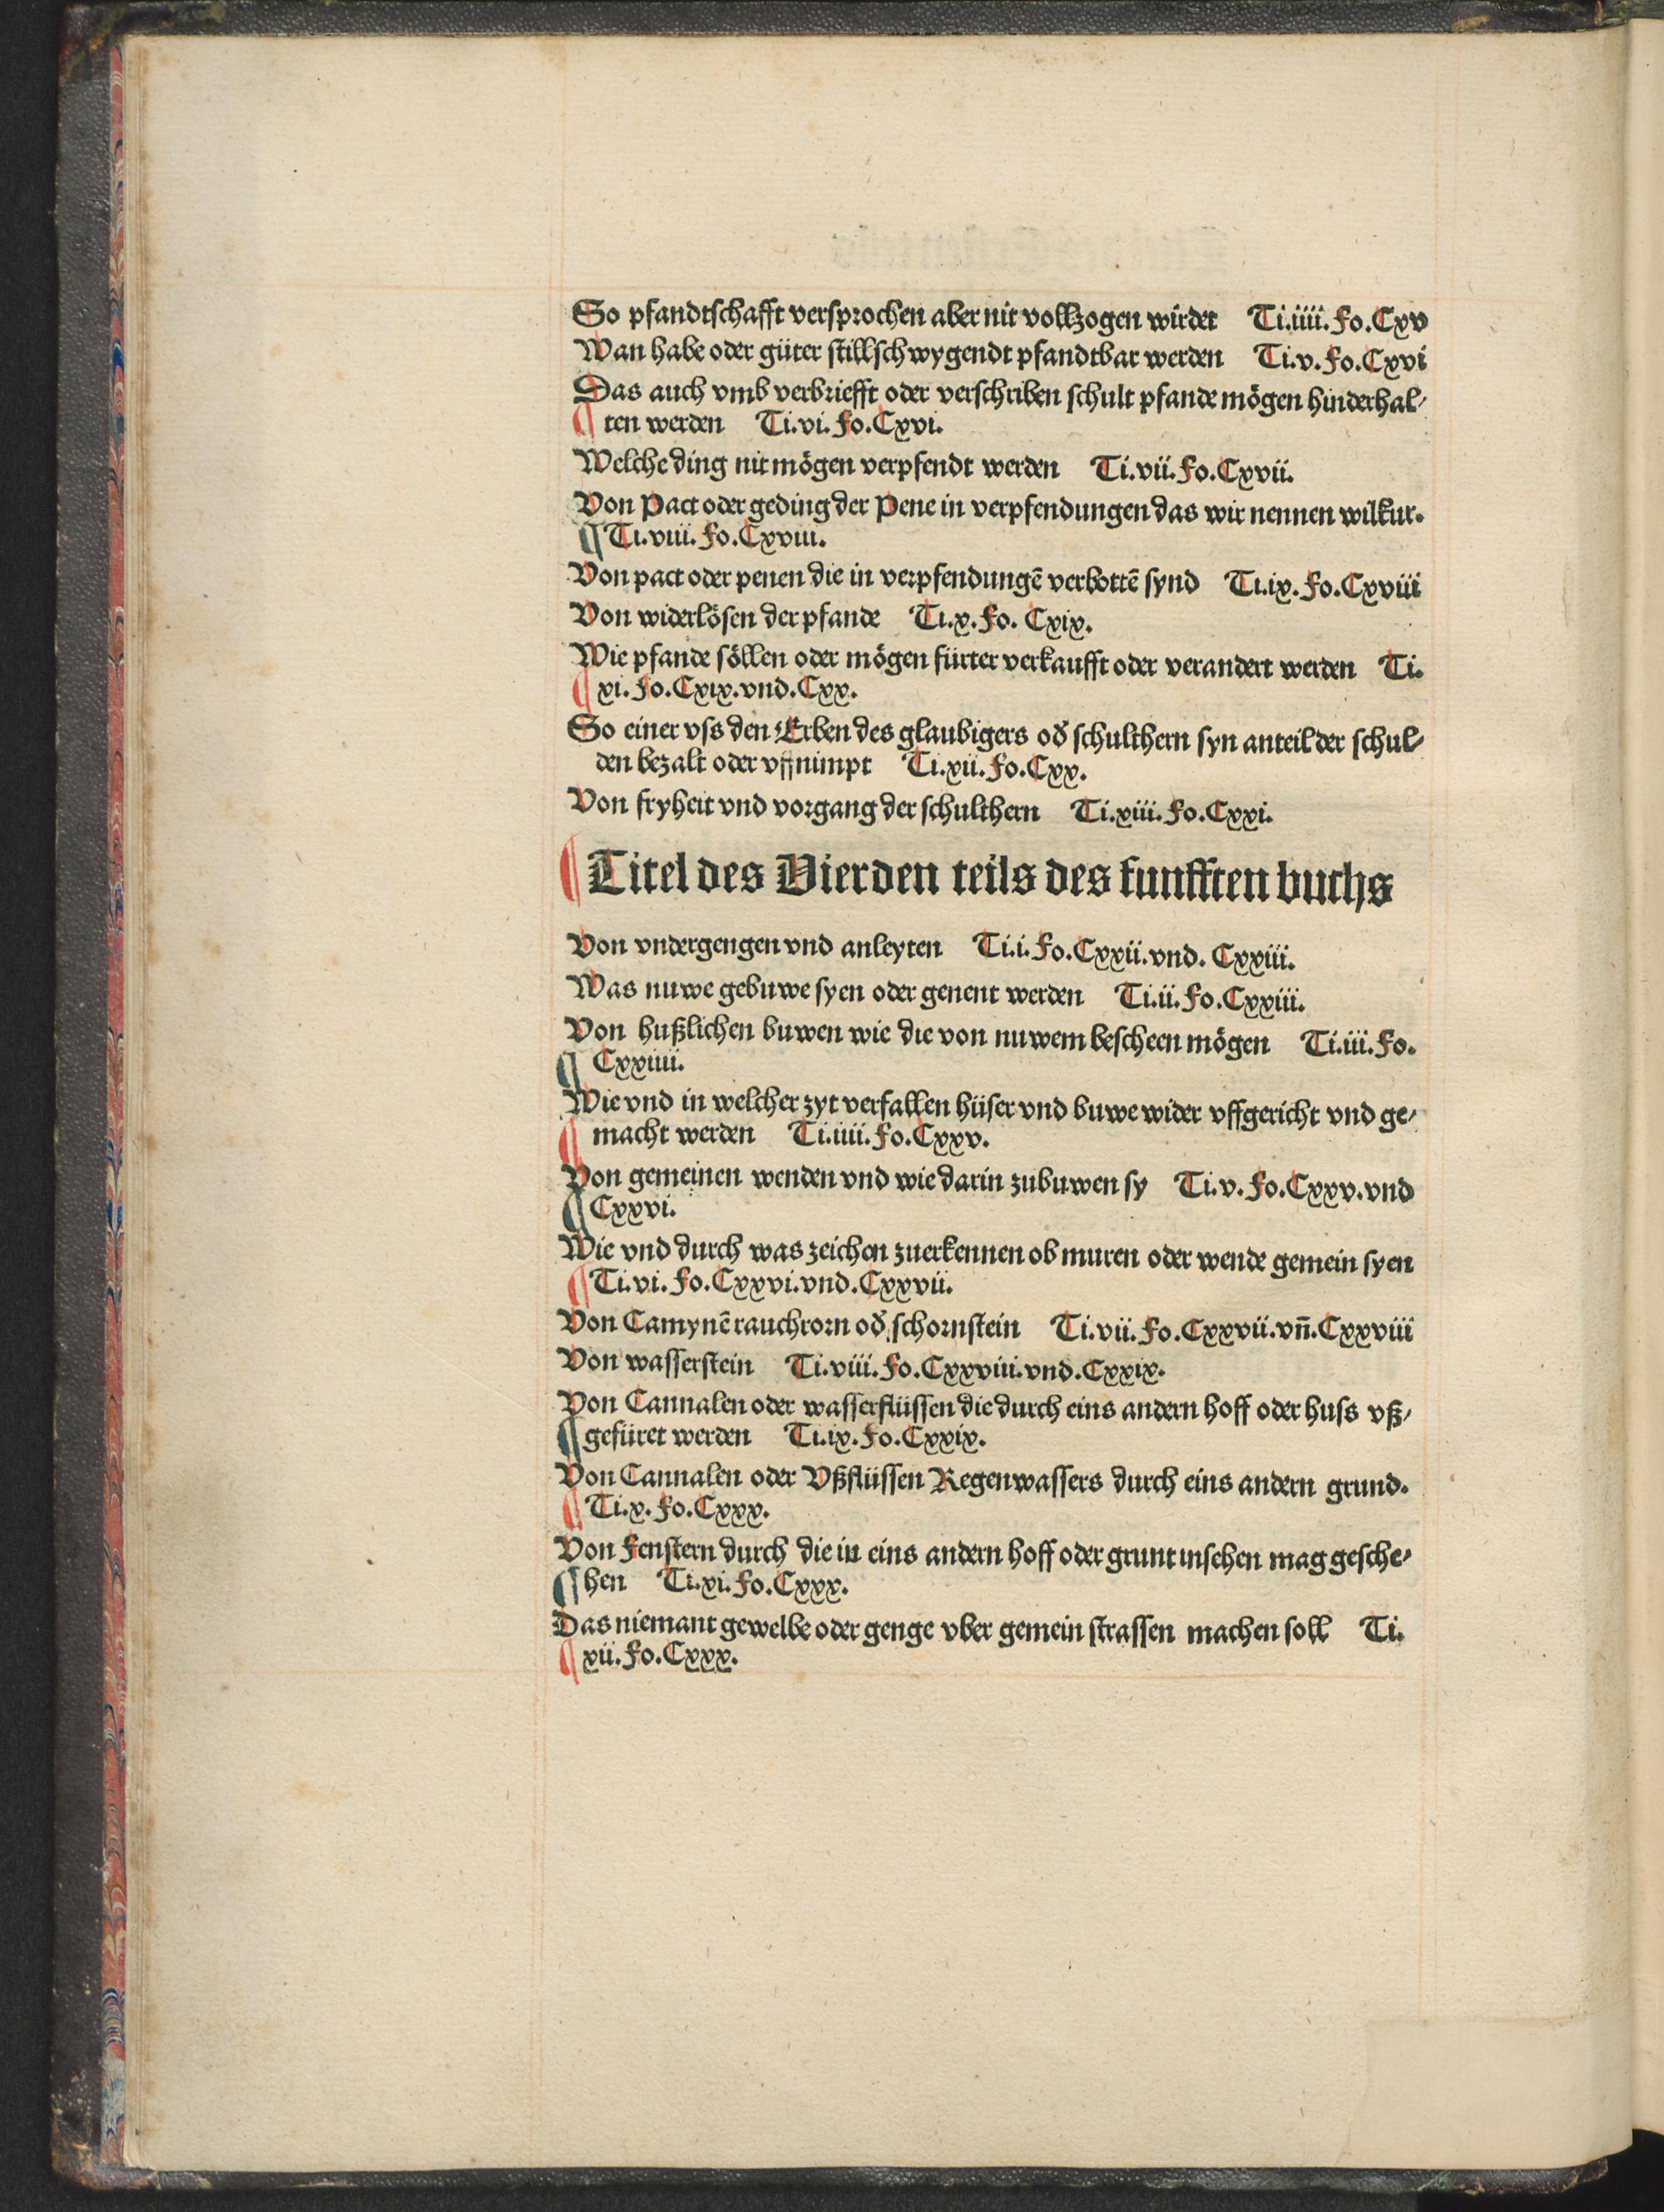 So pfandtschafft versprochen aber nit vollzogen wirdet Ti.iiii.Fo.Cxv
Wan habe oder güter stillschwygendt pfandtbar werden Ti.v.Fo.Cxvi
Das auch vmb verbriefft oder verschriben schult pfande mögen hinderhal⸗
¶ ten werden Ti.vi.Fo.Cxvi.
Welche ding nit mögen verpfendt werden Ti.vii.Fo.Cxvii.
Von Pact oder geding der Pene in verpfendungen das wir nennen wilkur.
¶ Ti.viii.Fo.Cxviii.
Von pact oder penen die in verpfendungē verbottē synd Ti.ix.Fo.Cxviii
Von widerlösen der pfande Ti.x.Fo. Cxix.
Wie pfande söllen oder mögen fürter verkaufft oder verandert werden Ti.
¶ xi.Fo.Cxix.vnd.Cxx.
So einer vss den Erben des glaubigers od̕ schulthern syn anteil der schul⸗
den bezalt oder vffnimpt Ti.xii.Fo.Cxx.
Von fryheit vnd vorgang der schulthern Ti.xiii.Fo.Cxxi.
¶ Titel des Vierden teils des funfften buchs
Von vndergengen vnd anleyten Ti.i.Fo.Cxxii.vnd. Cxxiii.
Was nuwe gebuwe syen oder genent werden Ti.ii.Fo.Cxxiii.
Von hußlichen buwen wie die von nuwem bescheen mögen Ti.iii.Fo.
¶ Cxxiiii.
Wie vnd in welcher zyt verfallen hüser vnd buwe wider vffgericht vnd ge⸗
¶ macht werden Ti.iiii.Fo.Cxxv.
Von gemeinen wenden vnd wie darin zubuwen sy Ti.v.Fo.Cxxv.vnd
¶ Cxxvi.
Wie vnd durch was zeichen zuerkennen ob muren oder wende gemein syen
¶ Ti.vi.Fo.Cxxvi.vnd.Cxxvii.
Von Camynē rauchrorn od̕ schornstein Ti.vii.Fo.Cxxvii.vn̄.Cxxviii
Von wasserstein Ti.viii.Fo.Cxxviii.vnd.Cxxix.
Von Cannalen oder wasserflüssen die durch eins andern hoff oder huss vß⸗
¶ gefüret werden Ti.ix.Fo.Cxxix.
Von Cannalen oder Vßflüssen Regenwassers durch eins andern grund.
¶ Ti.x.Fo.Cxxx.
Von Fenstern durch die in eins andern hoff oder grunt insehen mag gesche⸗
¶ hen Ti.xi.Fo.Cxxx.
Das niemant gewelbe oder genge vber gemein strassen machen soll Ti.
¶ xii.Fo.Cxxx.